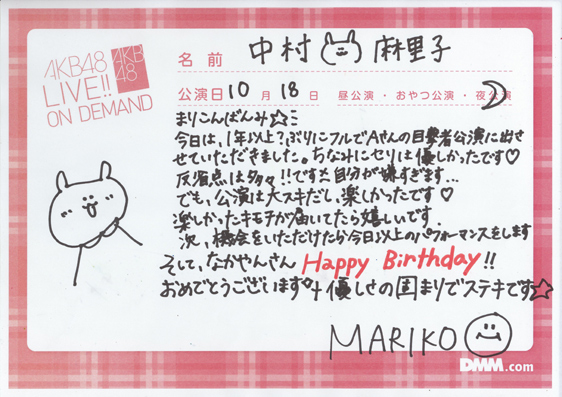 AKB48
LIVE!!
ON DEMAND
AKB
48
名前 中村 麻里子
公演日 10月18日 昼公演・おやつ公演・夜公演
まりこんばんみ☆ミ
今日は、1年以上?ぶりにフルでAさんの目撃者公演に出さ
せていただきました。ちなみにセリは優しかったです♡
反省点は多々!!です 自分が嫌すぎます…
でも、公演は大スキだし、楽しかったです♡
楽しかったキモチが届いてたら嬉しいです。
次、機会をいただけたら今日以上のパフォーマンスをします
そして、なかやんさん Happy Birthday!!
おめでとうございます 優しさの固まりでステキです☆
MARIKO
DMM.com